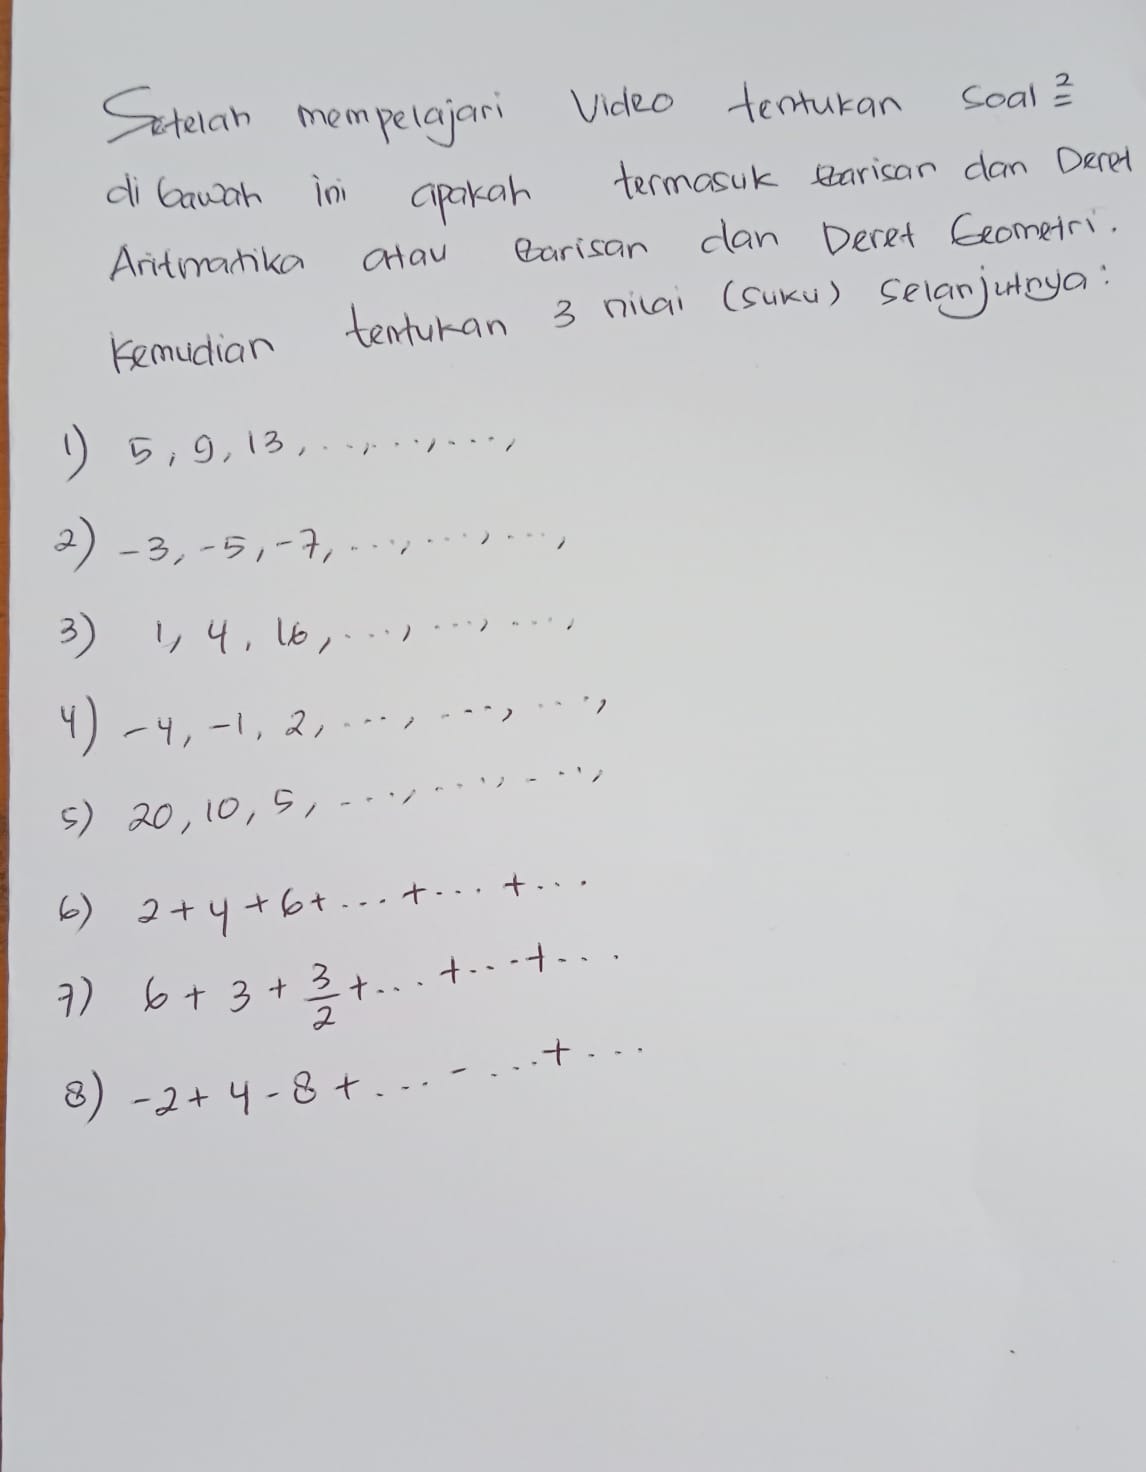 Setelah mempelajari Video tentukan Soal 2=
di bawah ini apakah termasuk Barisan dan Deret
Aritmatika atau Barisan dan Deret Geometri.
Kemudian tentukan 3 nilai (suku) selanjutnya:
1) 5, 9, 13, ..., ..., ...,
2) -3, -5, -7, ..., ..., ...,
3) 1, 4, 16, ..., ..., ...,
4) -4, -1, 2, ..., ..., ...,
5) 20, 10, 5, ..., ..., ...,
6) 2 + 4 + 6 + ... + ... + ...
7) 6 + 3 + 3/2 + ... + ... + ...
8) -2 + 4 - 8 + ... - ... + ...